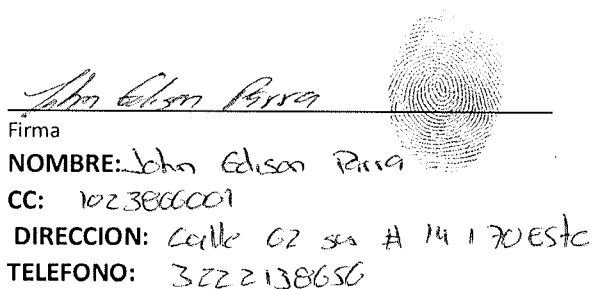 John Edison Parra
Firma
NOMBRE: John Edison Parra
CC: 1023866001
DIRECCION: Calle 62 sur # 14 1 70 Este
TELEFONO: 3222138656